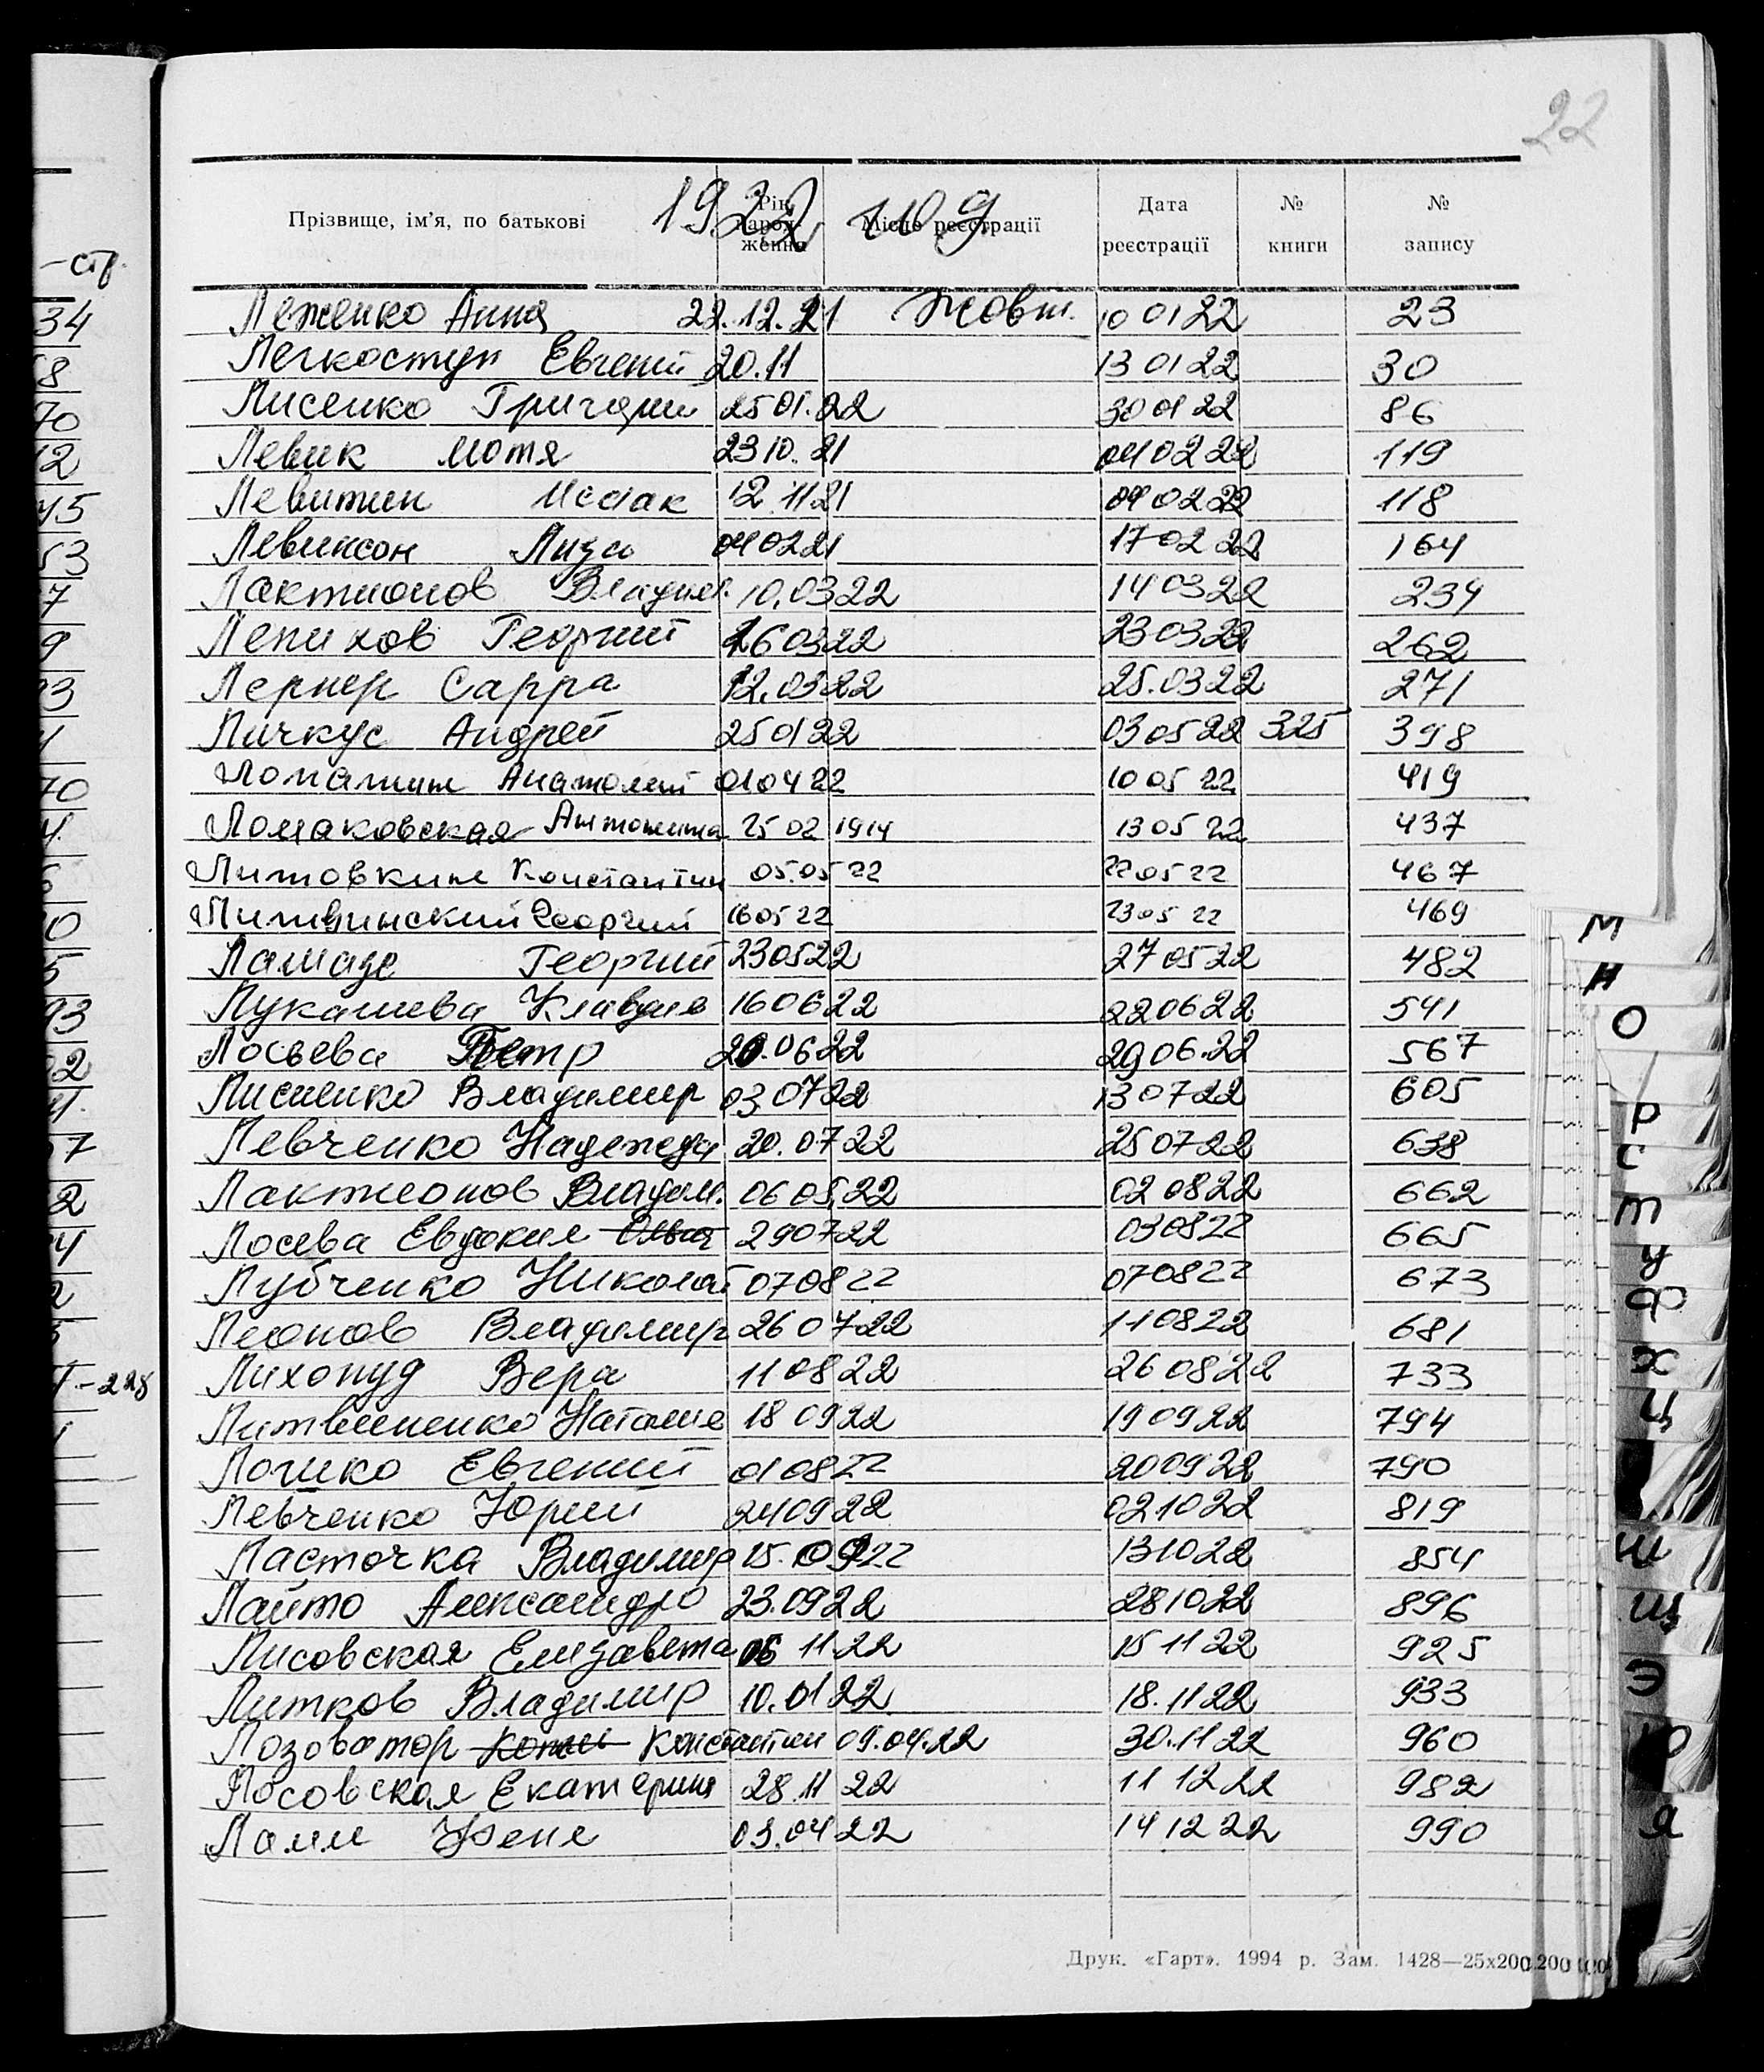 22
1922 год
Прізвище, ім'я, по батькові Рік народження Місце реєстрації Дата реєстрації № книги № запису
Леженко Анна 22.12.21 Жовт. 10 01 22 23
Легкоступ Евгений 20.11 13 01 22 30
Лисенко Григорий 25 01.22 30 01 22 86
Левик Мотя 23 10.21 04 02 22 119
Левитин Исаак 12 11 21 04 02 22 118
Левинсон Лиза 04 02 21 17 02 22 164
Лактионов Владим. 10.03 22 14 03 22 234
Лепихов Георгий 16 03 22 23 03 22 262
Лернер Сарра 12.03 22 25.03 22 271
Личкус Андрей 25 01 22 03 05 22 325 398
Лопатин Анатолий 01 04 22 10 05 22 419
Ломаковская Антонина 25 02 1914 13 05 22 437
Литовкин Константин 05.05 22 22 05 22 467
Литвинский Георгий 16 05 22 23 05 22 469
Ламазе Георгий 23 05 22 27 05 22 482
Лукашева Клавдия 16 06 22 22 06 22 541
Лосьева Петр 20.06 22 29 06.22 567
Лисненко Владимир 03 07 22 13 07 22 605
Левченко Надежда 20.07 22 25 07 22 638
Лактионов Владим. 06 05 22 02 08 22 662
Лосева Евдокия Ольга 29 07 22 03 08 22 665
Лубченко Николай 07 08 22 07 08 22 673
Леонов Владимир 26 07 22 11 08 22 681
Лихопуд Вера 11 08 22 26 08 22 733
Литвиненко Наталия 18 09 22 19 09 22 794
Логико Евгений 01 08 22 20 09 22 790
Левченко Юрий 24 09 22 02 10 22 819
Ласточка Владимир 15.09 22 13 10 22 854
Лайто Александр 23.09 22 28 10 22 896
Лисовская Елизавета 06 11.22 15 11 22 925
Литков Владимир 10.01 22 18.11 22 933
Лозоватор Константин 09.04.22 30.11 22 960
Лосовская Екатерина 28.11 22 11 12 22 982
Ламм Женя 03.04 22 14 12 22 990
Друк. «Гарт». 1994 р. Зам. 1428—25х200.200
стр.
34
8
70
12
45
53
7
9
70
93
57
2
-228
М
Н
О
Р
С
Т
У
Ф
Х
Ц
Ш
Щ
Э
Ю
Я